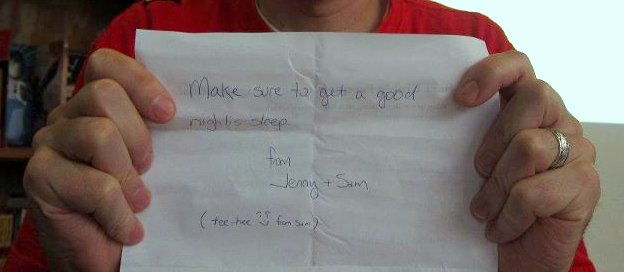 Make sure to get a good
night's sleep
from
Jenny + Sam
(tee-hee from Sam)